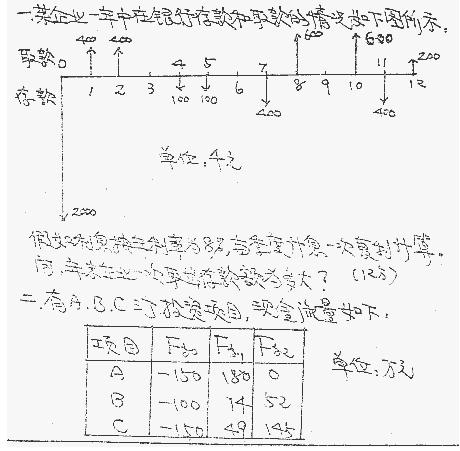 一.某企业一年中在银行存款和取款的情况如下图所示,
400 400 600 600 200
取款 0 4 5 7 11
存款 1 2 3 100 100 6 400 8 9 10 400 12
单位:千元
2000
假如利息按年利率为8%,每季度计息一次复利计算。
问,年末企业一次取出存款额为多大? (12分)
二.有A.B.C三个投资项目,现金流量如下.
项目 F₀ F₁ F₂
A -150 180 0
B -100 14 52
C -150 49 145
单位:万元